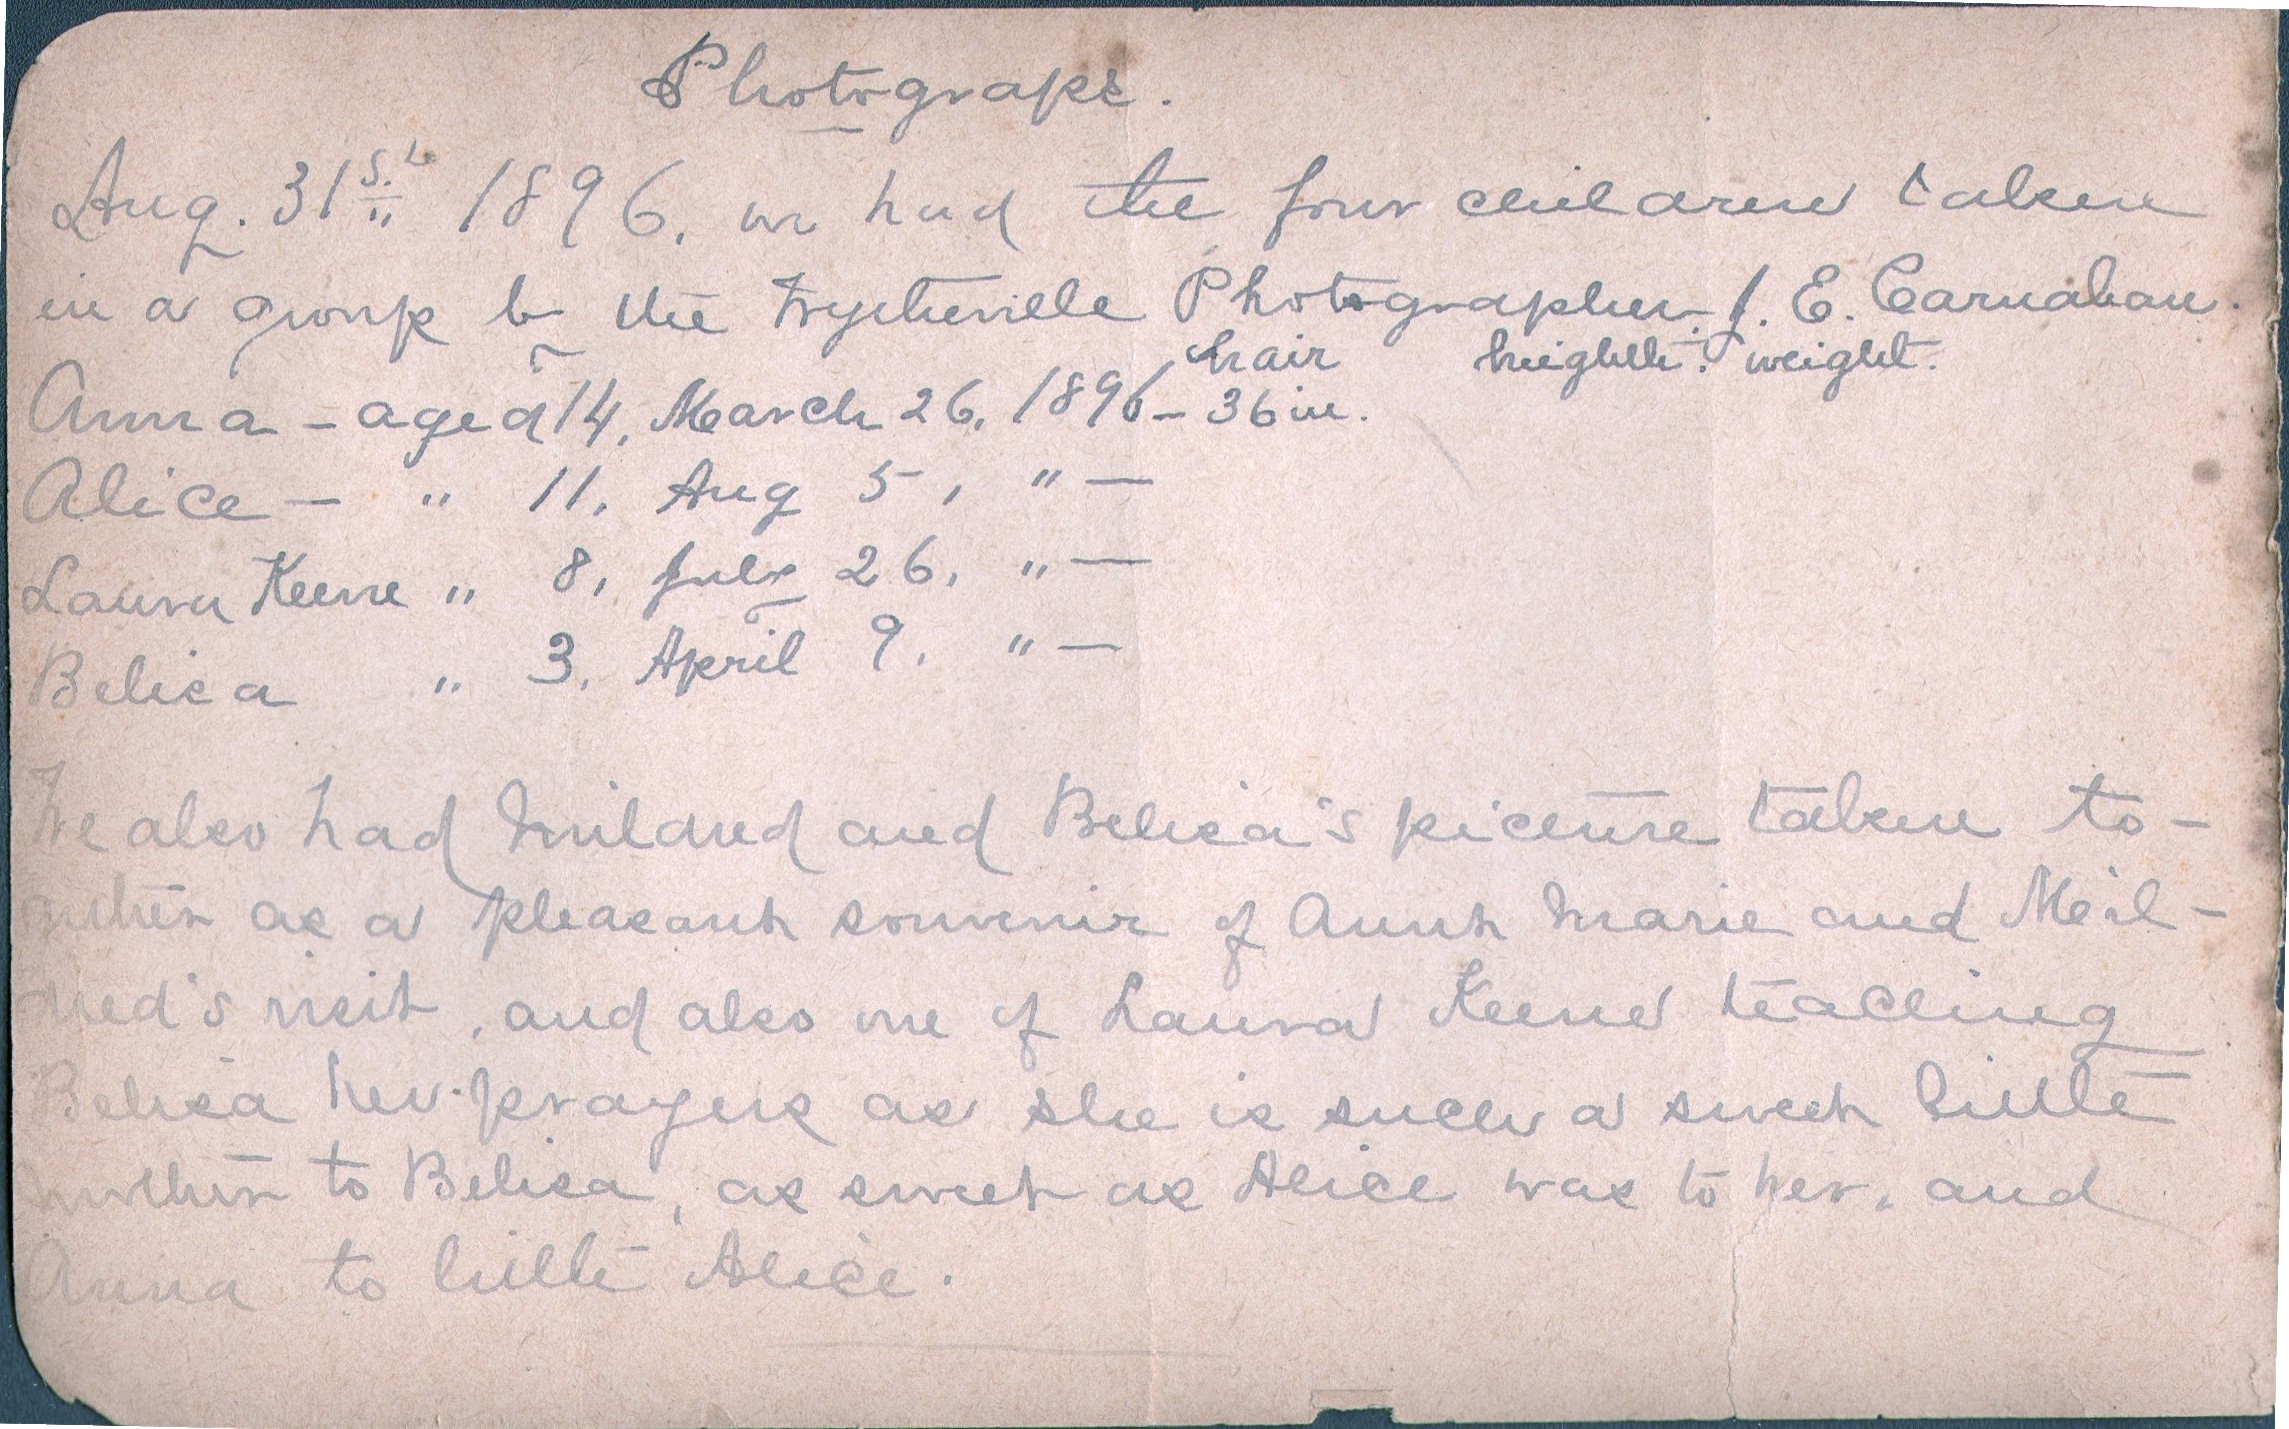 Photograps.
Aug. 31st 1896, we had the four children taken
in a group by the Wytheville Photographer. J. E. Carnahan.
hair heighth. weight.
Anna - aged 14, March 26, 1896 - 36 in.
Alice - " 11, Aug 5, " -
Laura Keene " 8, July 26, " -
Belisa " 3, April 9, " -
We also had Mildred and Belisa's picture taken to-
gether as a pleasant souvenir of Aunt Marie and Mil-
dred's visit, and also one of Laura Keene teaching
Belisa her prayers as she is such a sweet little
mother to Belisa, as sweet as Alice was to her, and
Anna to little Alice.